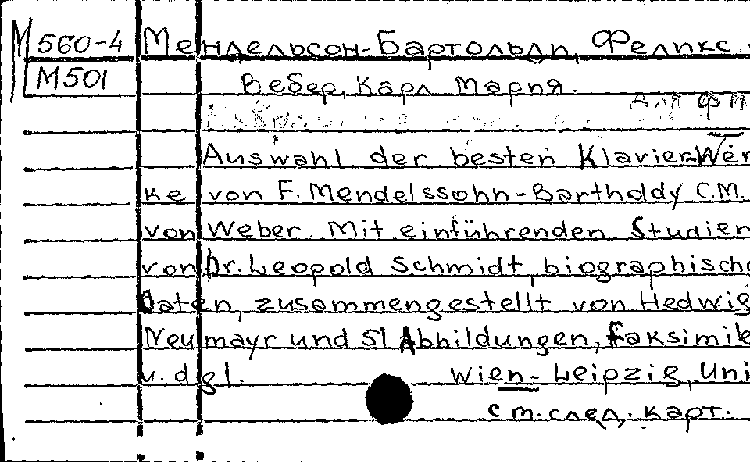 М 560-4 Мендельсон-Бартольди, Феликс.
М501 Вебер, Карл Мария.
Для фп
Auswahl der besten Klavier-Wer
ke von F. Mendelssohn-Bartholdy C.M.
von Weber. Mit einführenden Studien
von Dr. Leopold Schmidt, biographische
Daten, zusammengestellt von Hedwig
Neumayr und 51 Abbildungen, Faksimile
u. dgl. Wien-Leipzig, Uni
см. след. карт.